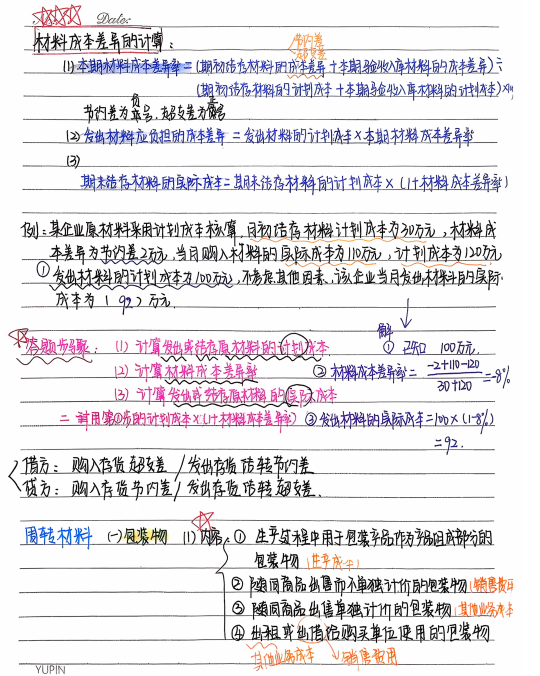 Date:
材料成本差异的计算:
节约差
超支差
(1) 本期材料成本差异率 = (期初结存材料的成本差异 + 本期验收入库材料的成本差异) ÷
(期初结存材料的计划成本 + 本期验收入库材料的计划成本)
节约差为负号,超支差为
(2) 发出材料应负担的成本差异 = 发出材料的计划成本 × 本期材料成本差异率
(3)
期末结存材料的实际成本 = 期末结存材料的计划成本 × (1+材料成本差异率)
例:某企业原材料采用计划成本核算,月初结存材料计划成本为30万元,材料成
本差异为节约差2万元,当月购入材料的实际成本为110万元,计划成本为120万元
① 发出材料的计划成本为100万元,不考虑其他因素,该企业当月发出材料的实际
成本为(92)万元.
解
答题步骤: (1) 计算发出或结存原材料的计划成本 ① 已知 100万元.
(2) 计算材料成本差异率 ② 材料成本差异率 = -2+110-120 / 30+120 = -8%
(3) 计算发出或结存原材料的实际成本
= 用第①步的计划成本×(1+材料成本差异率) ③ 发出材料的实际成本=100×(1-8%)
=92.
借方: 购入存货超支差 / 发出存货结转节约差
贷方: 购入存货节约差 / 发出存货结转超支差.
周转材料 (一) 包装物 (1) 内容: ① 生产过程中用于包装产品作为产品组成部分的
包装物 (生产成本)
② 随同商品出售而不单独计价的包装物 (销售费用
③ 随同商品出售单独计价的包装物 (其他业务成本
④ 出租或出借给购买单位使用的包装物
其他业务成本 销售费用
YUPIN